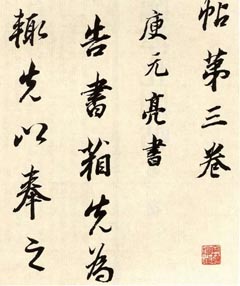 帖第三卷
庾元亮書
告書箱先為
輒先以奉之